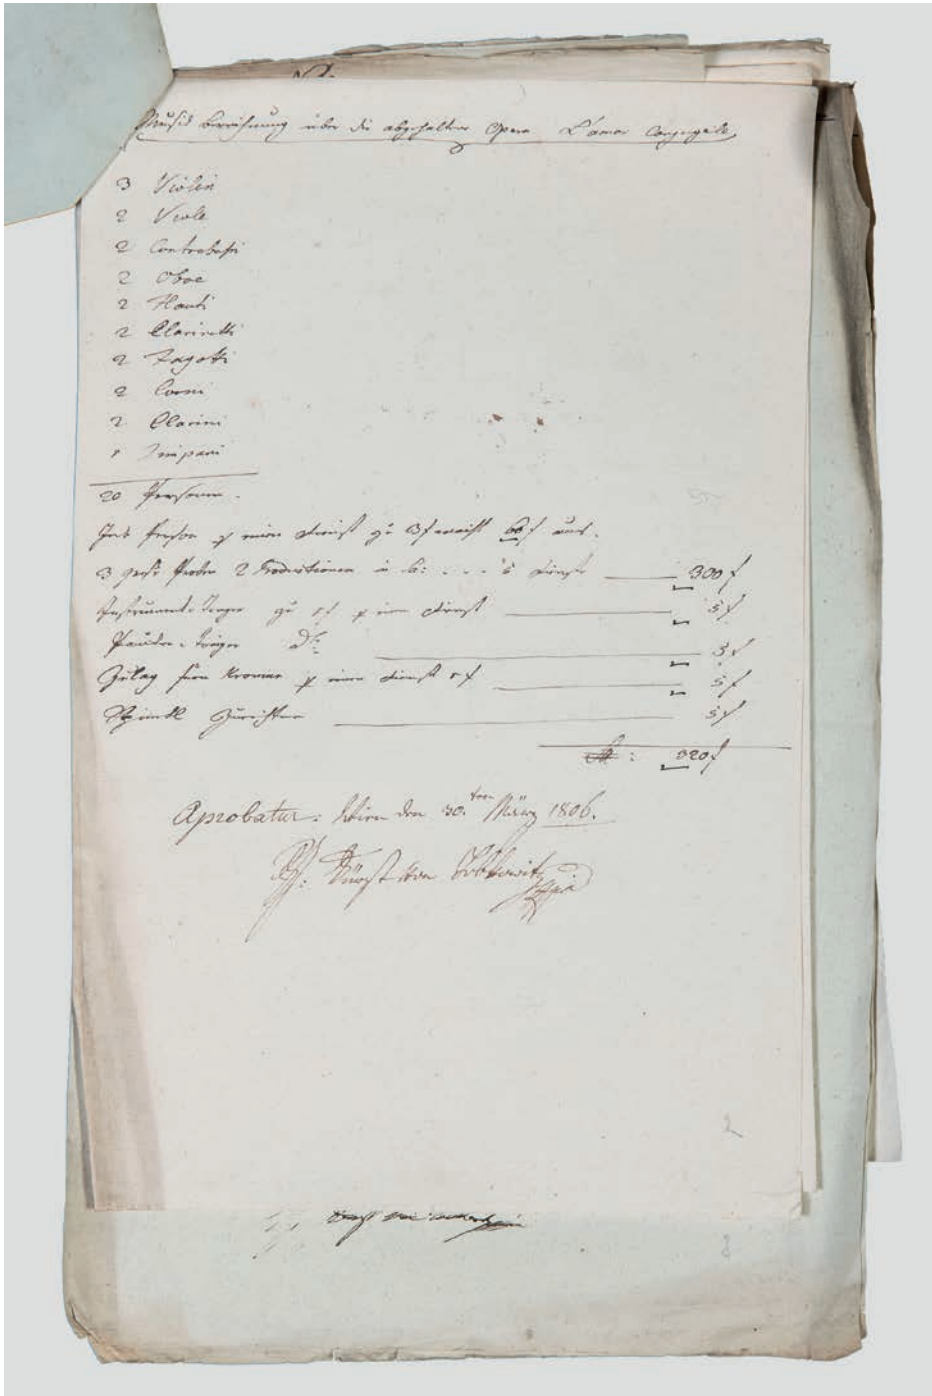 Musik Berechnung über die abgehaltene Opera L'amor Conjugale
3 Violin
2 Viole
2 Contrabassi
2 Oboe
2 Flauti
2 Clarinetti
2 Fagotti
2 Corni
2 Clarini
1 Timpani
20 Personen.
Jede Person p einen Dienst zu 3 f macht 60 f aus.
3 Proben 2 Productionen à 60: . . . 5 Dienste 300 f
Instrument-Trager zu 1 f p einen Dienst 5 f
Paucken-Träger
Zulag p einen Dienst 1 f 5 f
Zurichten 5 f
320 f
Aprobatur: Wien den 30.ten März 1806.
Fürst von Lobkowitz
2